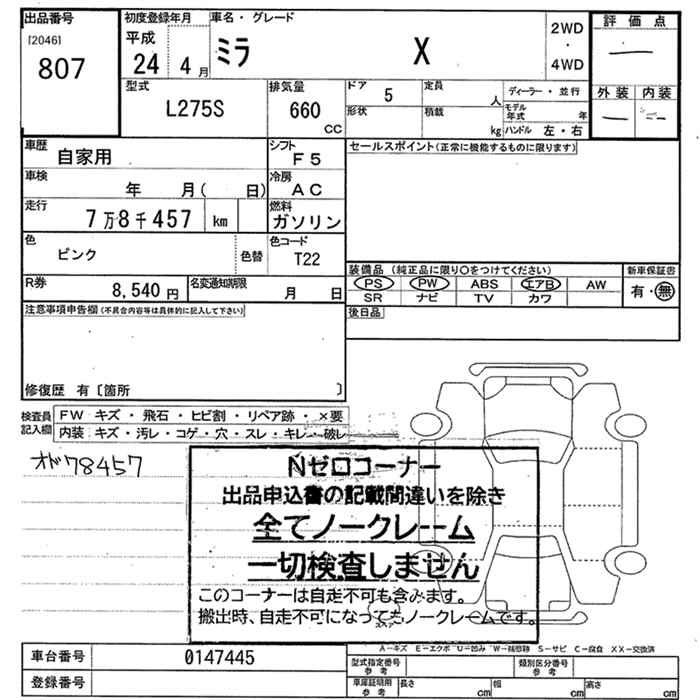 出品番号
[2046]
807
初度登録年月
平成
24 4月
車名・グレード
ミラ X
2WD
・
4WD
評価点
—
外装 内装
— --
型式
L275S
排気量
660
CC
ドア 5
定員 人
形状
積載 kg
ディーラー・並行
モデル年式 年
ハンドル 左・右
車歴
自家用
シフト
F5
セールスポイント(正常に機能するものに限ります)
車検
年 月( 日)
冷房
AC
走行
7万8千457 km
燃料
ガソリン
色
ピンク
色替
色コード
T22
装備品 (純正品に限り○をつけてください)
新車保証書
PS PW ABS エアB AW
SR ナビ TV カワ
有・無
R券
8,540円
名変通知期限
月 日
後日品
注意事項申告欄(不具合内容等は具体的に記入して下さい)
修復歴 有〔箇所 〕
検査員記入欄
FW キズ・飛石・ヒビ割・リペア跡・×要
内装 キズ・汚レ・コゲ・穴・スレ・キレ・破レ
オド78457
Nゼロコーナー
出品申込書の記載間違いを除き
全てノークレーム
一切検査しません
このコーナーは自走不可も含みます。
搬出時、自走不可になってもノークレームです。
A-キズ E-エクボ U-凹み W-補修跡 S-サビ C-腐食 XX-交換済
車台番号
0147445
登録番号
型式指定番号
参考
類別区分番号
参考
車庫証明用
参考
長さ cm
幅 cm
高さ cm